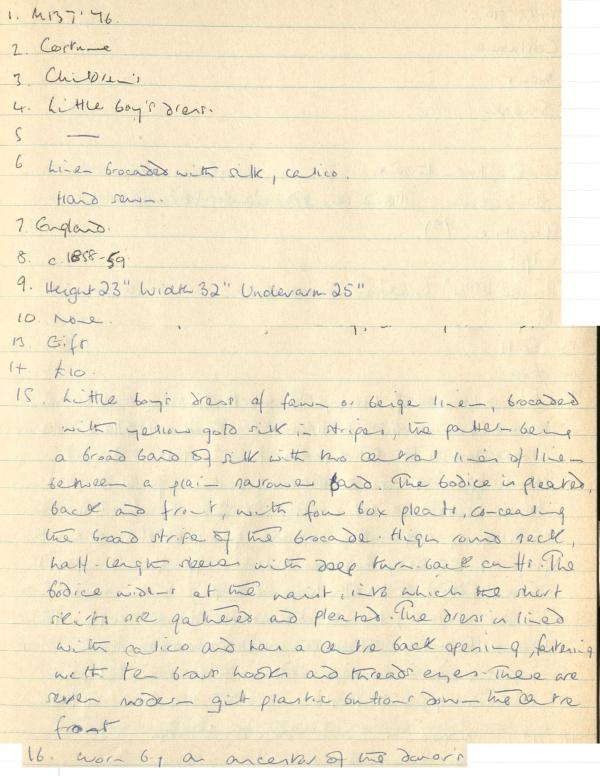 1. M137'76.
2. Costume
3 Children's
4. Little boy's dress.
5 —
6 Linen brocaded with silk, calico.
Hand sewn.
7. England.
8. c.1858-59
9. Height 23" Width 32" Underarm 25"
10. None.
13 Gift
14 £10.
15. Little boy's dress of fawn or beige linen, brocaded
with yellow gold silk in stripes, the pattern being
a broad band of silk with two central lines of linen
between a plain narrower band. The bodice is pleated,
back and front, with four box pleats, concealing
the broad stripe of the brocade. High round neck,
half-length sleeves with deep turn-back cuffs. The
bodice widens at the waist, into which the short
skirts are gathered and pleated. The dress is lined
with calico and has a centre back opening, fastening
with ten brass hooks and thread eyes. There are
seven modern gilt plastic buttons down the centre
front
16. worn by an ancestor of the donor's